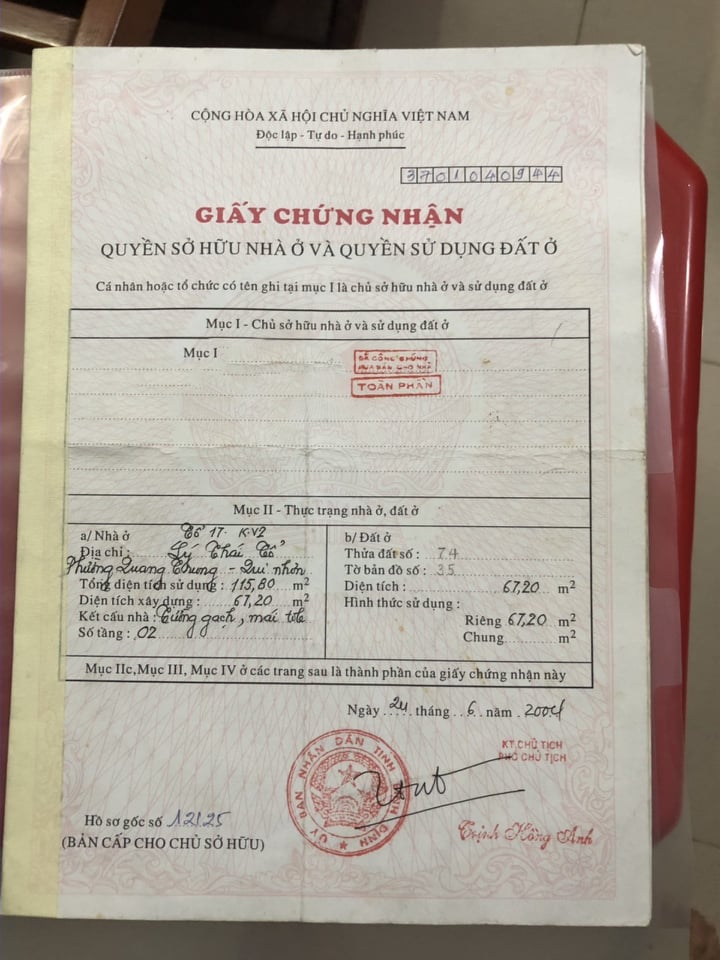 CỘNG HÒA XÃ HỘI CHỦ NGHĨA VIỆT NAM
Độc lập - Tự do - Hạnh phúc
3701040944
GIẤY CHỨNG NHẬN
QUYỀN SỞ HỮU NHÀ Ở VÀ QUYỀN SỬ DỤNG ĐẤT Ở
Cá nhân hoặc tổ chức có tên ghi tại mục I là chủ sở hữu nhà ở và sử dụng đất ở
Mục I - Chủ sở hữu nhà ở và sử dụng đất ở
Mục I
ĐÃ CÔNG CHỨNG
MUA BÁN CHO NHÀ
TOÀN PHẦN
Mục II - Thực trạng nhà ở, đất ở
a/ Nhà ở Tổ 17 - KV2
Địa chỉ : Lý Thái Tổ
Phường Quang Trung - Qui nhơn
Tổng diện tích sử dụng : 115,80 m²
Diện tích xây dựng : 67,20 m²
Kết cấu nhà : Tường gạch, mái tole
Số tầng : 02
b/ Đất ở
Thửa đất số : 74
Tờ bản đồ số : 35
Diện tích : 67,20 m²
Hình thức sử dụng :
Riêng 67,20 m²
Chung m²
Mục IIc, Mục III, Mục IV ở các trang sau là thành phần của giấy chứng nhận này
Ngày 24 tháng 6 năm 2004
KT.CHỦ TỊCH
PHÓ CHỦ TỊCH
ỦY BAN NHÂN DÂN TỈNH BÌNH ĐỊNH
Trịnh Hồng Anh
Hồ sơ gốc số 12125
(BẢN CẤP CHO CHỦ SỞ HỮU)